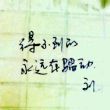 得不到的
永远在骚动.